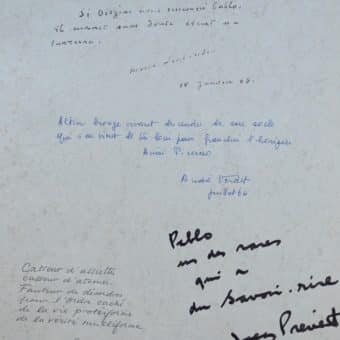 Si Diogène avait rencontré Pablo,
il aurait sans doute éteint sa
lanterne.
janvier 68.
Altier bronze vivant descendu de son socle
qui s'en vient de là bas pour franchir l'horizon
Ainsi Picasso
André Verdet
juillet 66
Pablo
un des rares
qui a
du savoir-rire
Jacques Prévert
Casseur d'assiette
casseur d'atomes
Fauteur de désordre
pour l'Ordre caché
de la vie protéiforme
de la vérité multiforme